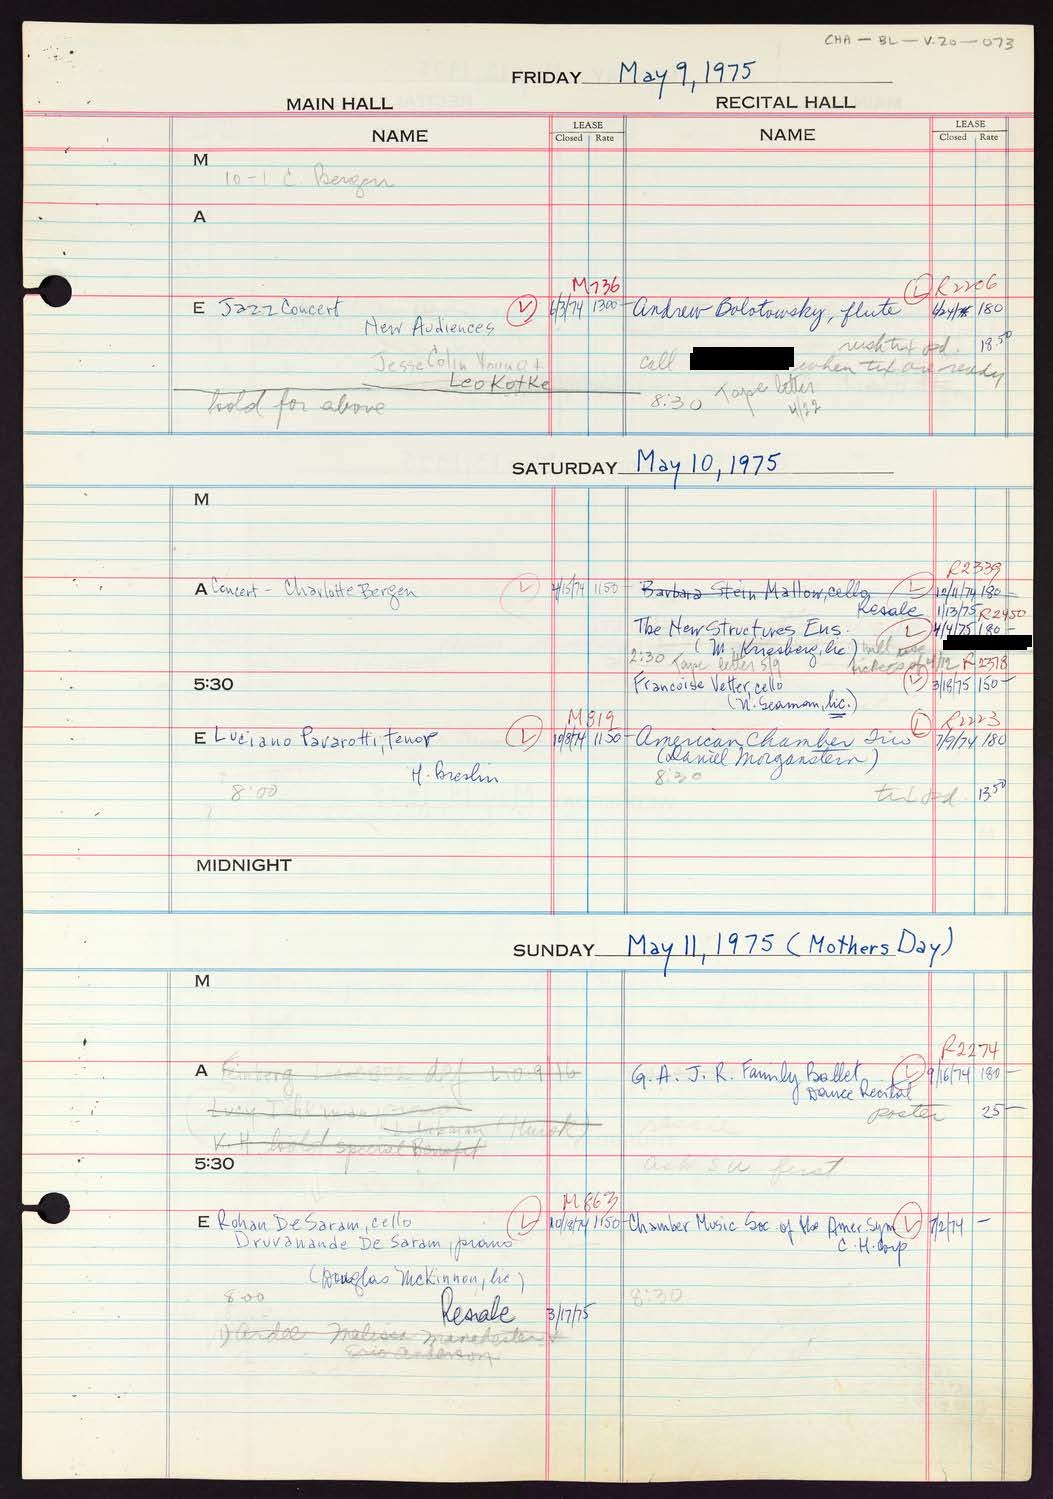 CHA - BL - V.20 - 073
FRIDAY May 9, 1975
MAIN HALL RECITAL HALL
NAME LEASE Closed Rate NAME LEASE Closed Rate
M
10-1 C. Bergen
A
M736 L R2206
E Jazz Concert L 6/3/74 1300- Andrew Bolotowsky, flute 180
New Audiences
tix pd. 18.50
Jesse Colin Young +
call when tix are ready
Leo Kotke
Tape letter
hold for above 8:30 4/22
SATURDAY May 10, 1975
M
R2339
A Concert - Charlotte Bergen L 4/15/74 1150- Barbara Stein Mallow, cello L 12/11/74 180-
Resale 1/13/75 R2450
The New Structures Ens. L 4/4/75 180-
(M. Kriesberg, lic)
2:30 Tape letter 5/9 R2378
5:30 Francoise Vetter, cello L 3/18/75 150-
(N. Seaman, lic.)
M819 L R2223
E Luciano Pavarotti, tenor L 10/8/74 1150- American Chamber Trio 7/9/74 180
(Daniel Morganstern)
H. Breslin
8:30
8:00 tix pd. 13.50
MIDNIGHT
SUNDAY May 11, 1975 (Mothers Day)
M
R2274
A Feinberg def G. A. J. R. Family Ballet L 9/16/74 180-
Dance Recital
Lucy poster 25-
V.H. hold special Benefit
5:30 ask S U first
M863
E Rohan De Saram, cello L 10/18/74 1150- Chamber Music Soc of the Amer Sym L 7/2/74 -
Druvanande De Saram, piano C.H. Corp
(Douglas McKinnon, lic)
8:00 8:30
Resale 3/17/75
Melissa Manchester +
Eric Anderson